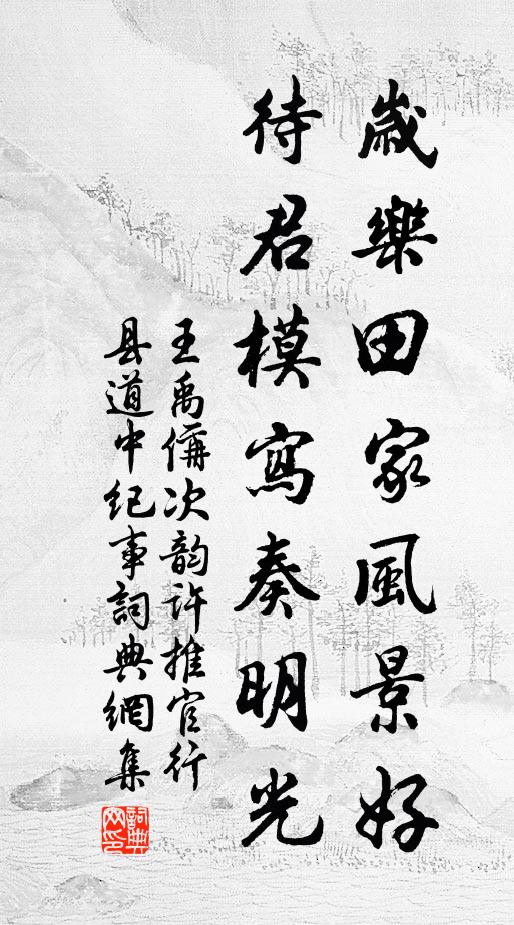 歲樂田家風景好
待君模寫奏明光
王禹偁次韵許推官行
县道中纪事詞典網集
詞典网印